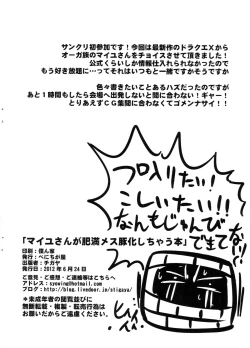 サンクリ初参加です！今回は最新作のドラクエXから
オーガ族のマイユさんをチョイスさせて頂きました！
公式くらいしか情報仕入れられなかったので
もう好き放題に…ってそれはいつもと一緒ですかそうですか
色々書きたいことあるハズだったのですが
あと1時間もしたら会場へ出発しないと間に合わない！ギャー！
とりあえずCG集間に合わなくてゴメンナサイ！！
フロ入りたい！
こしいたい！！
なんもじゅんび
できてな
「マイユさんが肥満メス豚化しちゃう本」
印刷：僕ん家
発行：べにちが屋
出版者：チガヤ
発行日：2012年6月24日
ご意見・ご感想・ご連絡等はこちらへ
アドレス：syowing@hotmail.com
ブログ：http://blog.livedoor.jp/stigaya/
＊未成年者の閲覧並びに
無断転載・複製・転売行為は
お願いだからご遠慮ください。